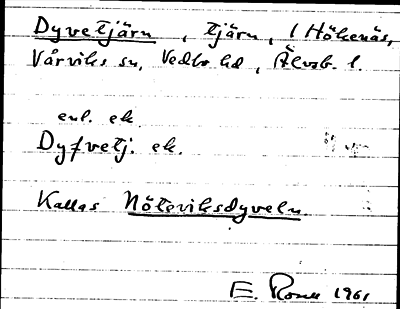 Dyvetjärn, tjärn, i Hökenäs,
Vårviks sn, Vedbo hd, Älvsb. l.
enl. ek.
Dyfvetj. ek.
Kallas Nötviksdyveln
E. Rosell 1961